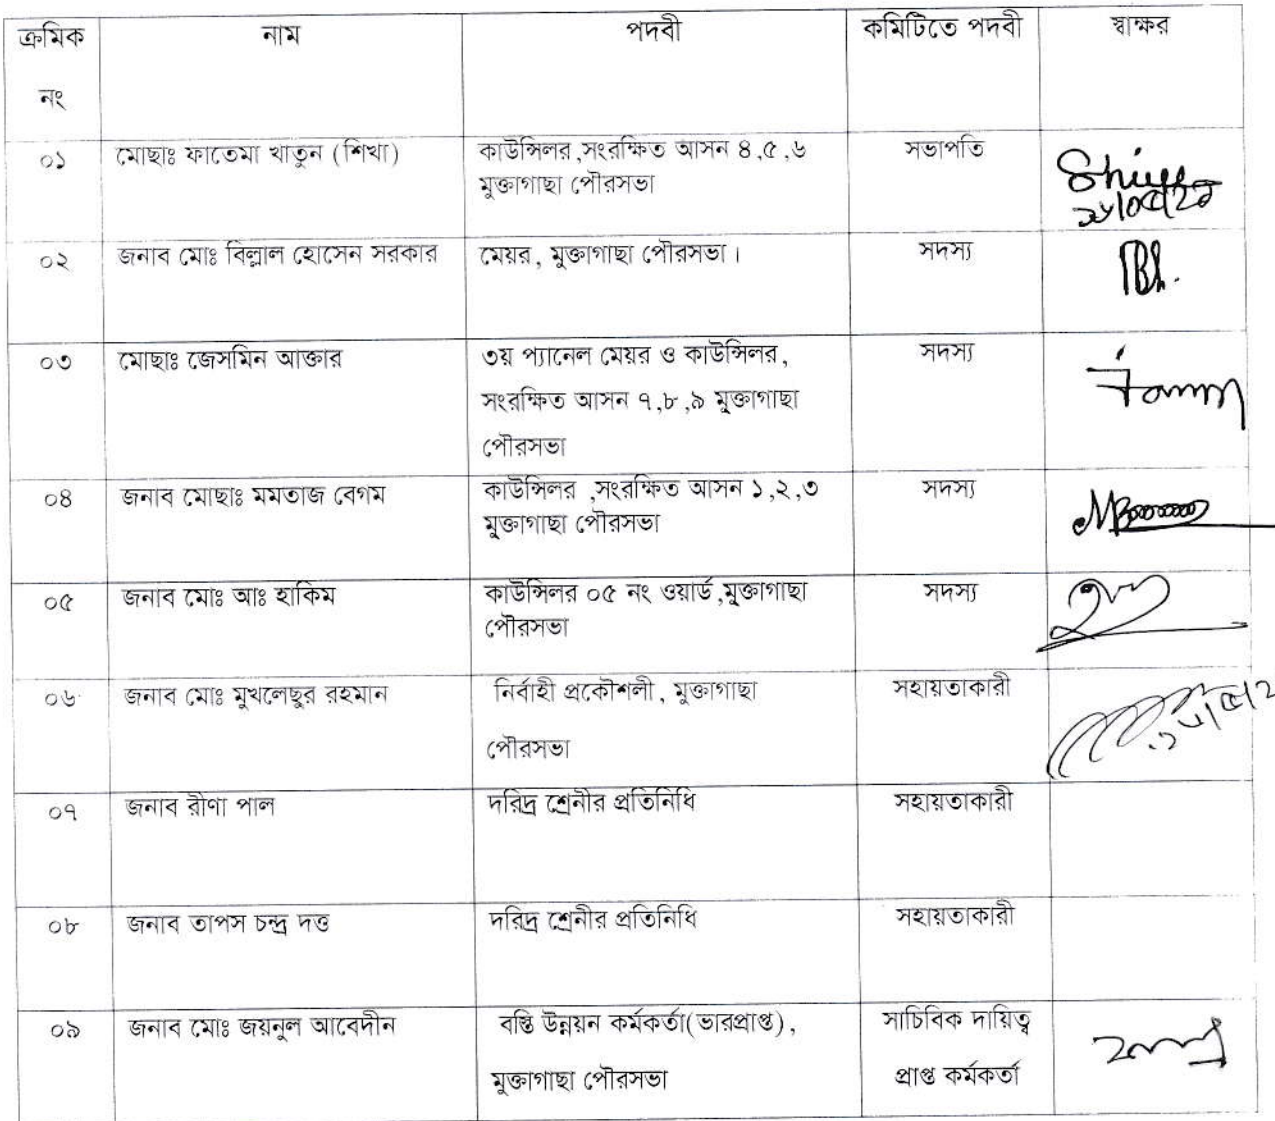 ক্রমিক নাম পদবী কমিটিতে পদবী স্বাক্ষর
নং
০১ মোছাঃ ফাতেমা খাতুন (শিখা) কাউন্সিলর,সংরক্ষিত আসন ৪,৫,৬ সভাপতি
মুক্তাগাছা পৌরসভা
০২ জনাব মোঃ বিল্লাল হোসেন সরকার মেয়র, মুক্তাগাছা পৌরসভা। সদস্য
০৩ মোছাঃ জেসমিন আক্তার ৩য় প্যানেল মেয়র ও কাউন্সিলর, সদস্য
সংরক্ষিত আসন ৭,৮,৯ মুক্তাগাছা
পৌরসভা
০৪ জনাব মোছাঃ মমতাজ বেগম কাউন্সিলর ,সংরক্ষিত আসন ১,২,৩ সদস্য
মুক্তাগাছা পৌরসভা
০৫ জনাব মোঃ আঃ হাকিম কাউন্সিলর ০৫ নং ওয়ার্ড,মুক্তাগাছা সদস্য
পৌরসভা
০৬ জনাব মোঃ মুখলেছুর রহমান নির্বাহী প্রকৌশলী, মুক্তাগাছা সহায়তাকারী
পৌরসভা
০৭ জনাব রীণা পাল দরিদ্র শ্রেনীর প্রতিনিধি সহায়তাকারী
০৮ জনাব তাপস চন্দ্র দত্ত দরিদ্র শ্রেনীর প্রতিনিধি সহায়তাকারী
০৯ জনাব মোঃ জয়নুল আবেদীন বস্তি উন্নয়ন কর্মকর্তা(ভারপ্রাপ্ত), সাচিবিক দায়িত্ব
মুক্তাগাছা পৌরসভা প্রাপ্ত কর্মকর্তা